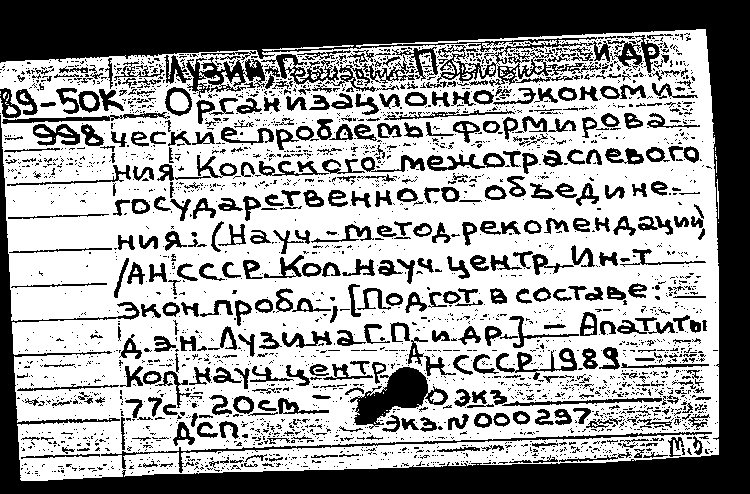 Лузин, Г П и др.
89-50К Организационно экономи-
998 ческие проблемы формирова-
ния Кольского межотраслевого
государственного объедине-
ния: (Науч.-метод рекомендации)
/АН СССР Кол. науч. центр, Ин-т
экон. пробл; [Подгот. в составе:
д.э.н. Лузина Г.П. и др.] – Апатиты
Кол. науч. центр АН СССР, 1989 –
77с., 20см –
экз
ДСП. экз. № 000297